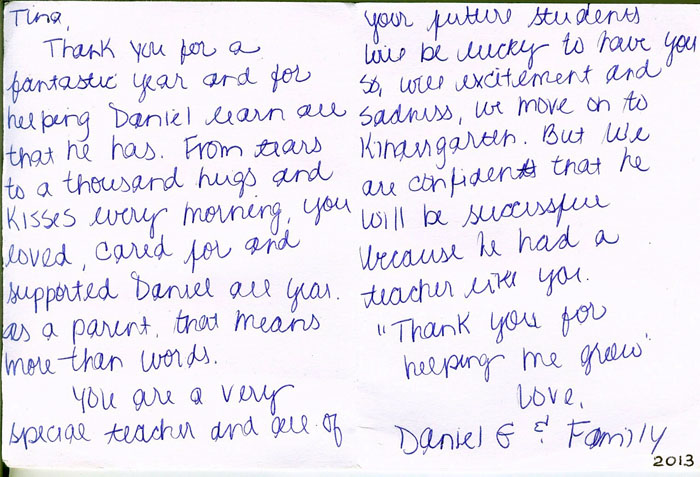 Tina,
Thank you for a
fantastic year and for
helping Daniel learn all
that he has. From tears
to a thousand hugs and
kisses every morning, you
loved, cared for and
supported Daniel all year.
as a parent, that means
more than words.
You are a very
special teacher and all of
your future students
will be lucky to have you
So, with excitement and
sadness, we move on to
Kindergarten. But we
are confident that he
will be successful
because he had a
teacher like you.
"Thank you for
helping me grow"
Love,
Daniel G & Family
2013